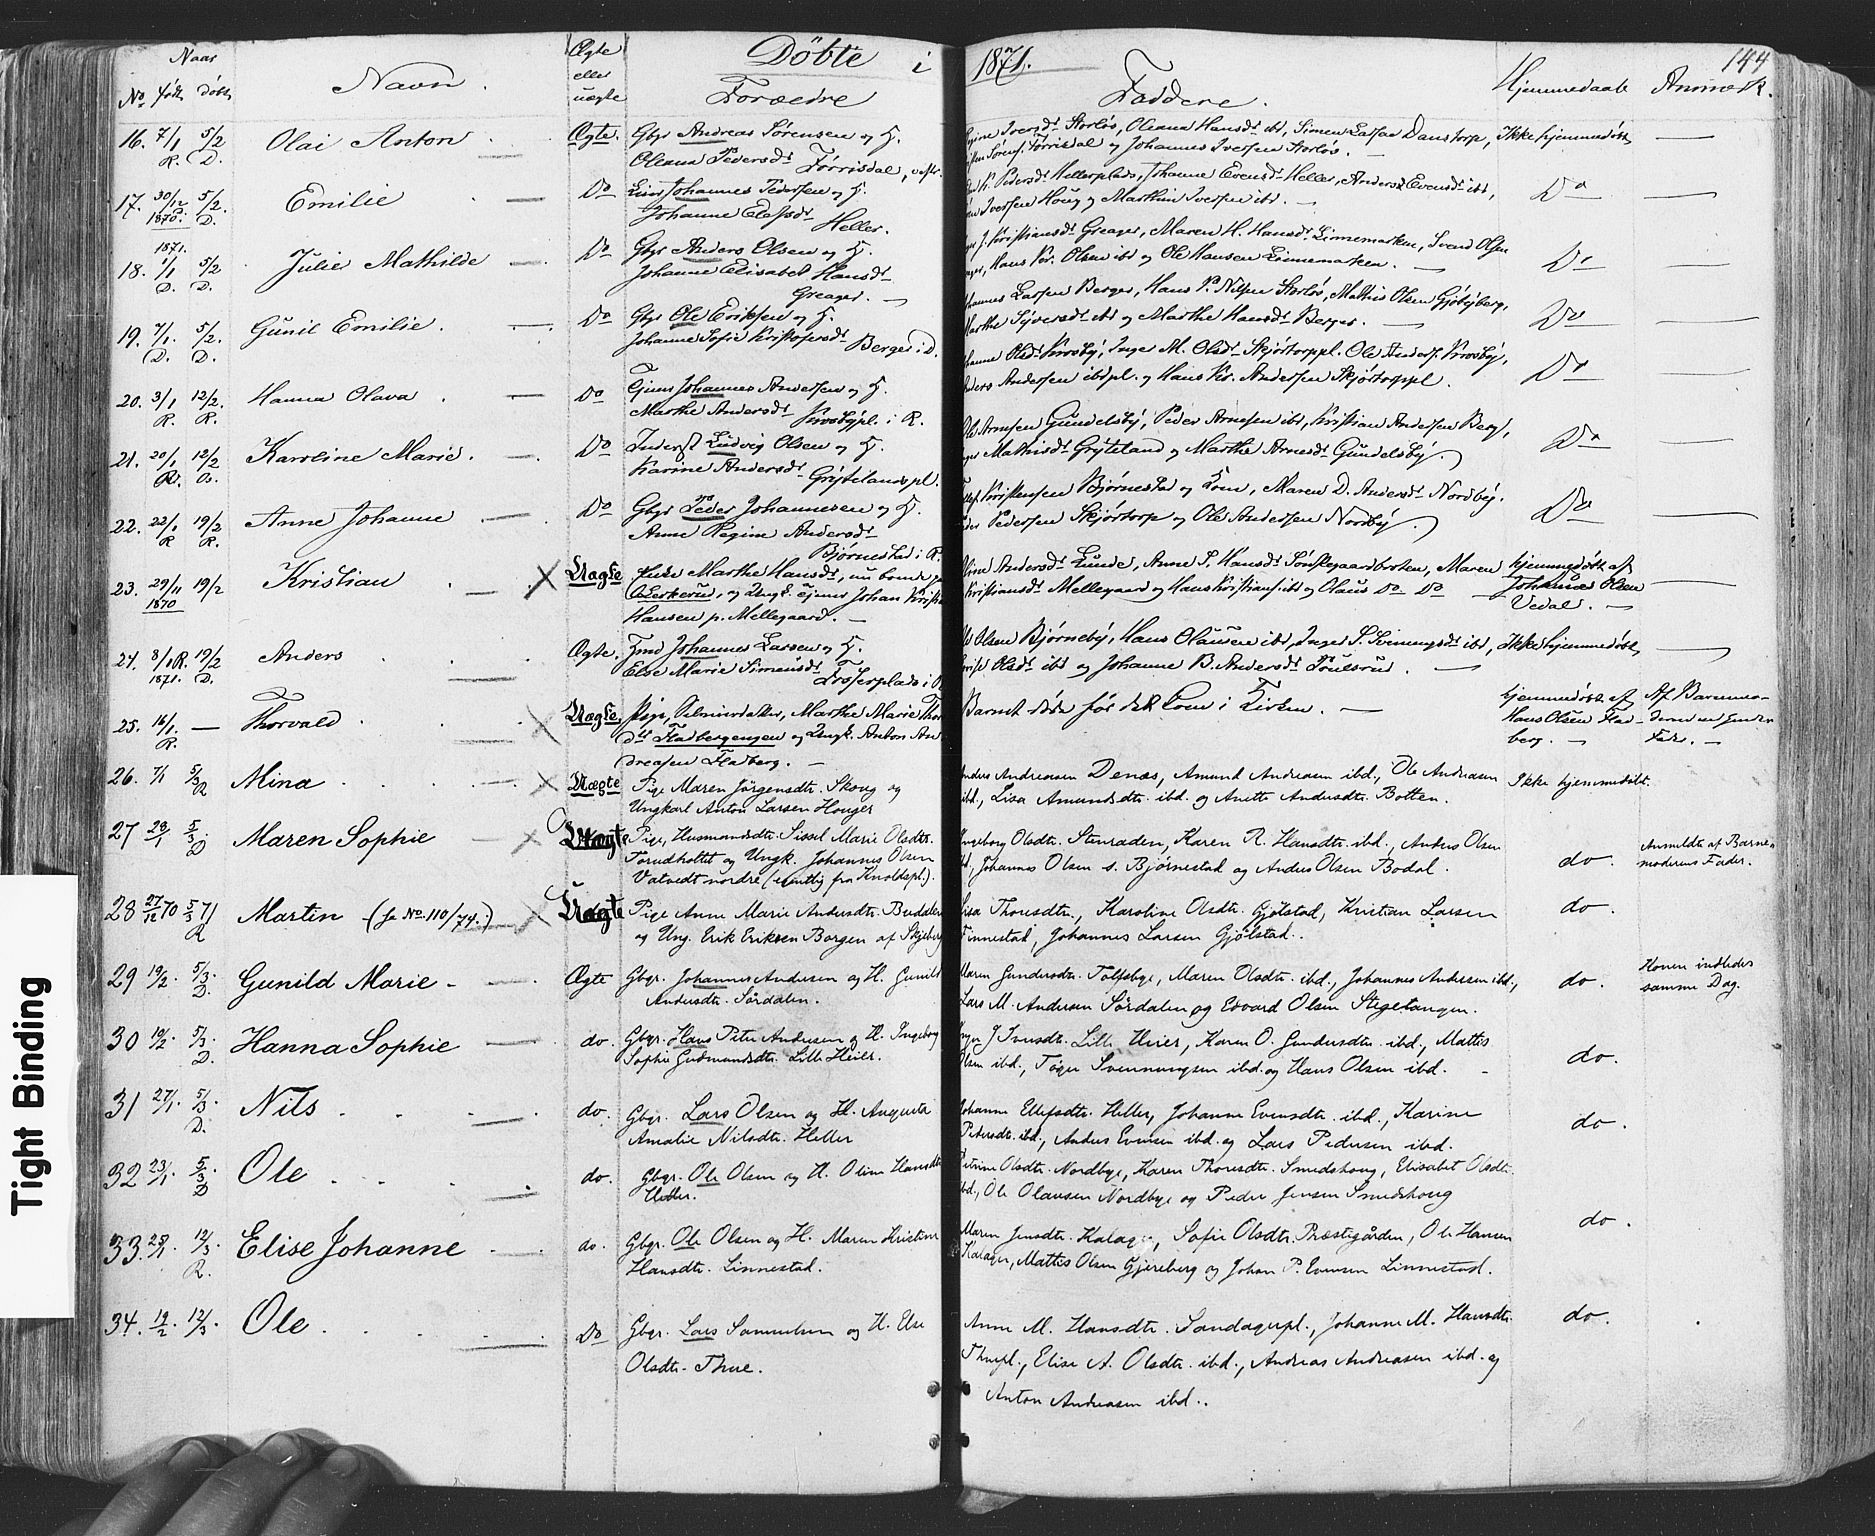 Døbte i 1871. 144
No. Naar født døbt Navn. Ægte eller uægte Forældre Faddere. Hjemmedaab Anmærk.
16. 7/1 R. 5/2 D. Olai Anton Ægte. Gbr. Andreas Sørensen og H. Oleana Pedersdt Tørrisdal, vestr.
Iversdt Storløs, Oleana Hansdt ibd, Simen Larsen Danstorp, Ikke hjemmedøbt
Sørens. Tørrisdal og Johannes Iversen Storløs.
17. 30/12 1870. 5/2. D. Emilie Do Johannes Pedersen og H.
Johanne Elefsdt Heller.
Pedersdt Hellerplads, Johanne Evensdt Heller, Anders Evensdt ibd, Do
Iversen Houg og Marthin Iversen ibd.
18. 1871. 1/1 D. 5/2 D. Julie Mathilde Do Gbr Anders Olsen og H.
Johanne Elisabet Hansdt
Greager.
J. Kristiansdt Greager, Maren H. Hansdt Linnemarken, Svend Olsen
Hans Kr. Olsen ibd og Ole Hansen Linnemarken. Do
19. 7/1. D. 5/2. D. Gunil Emilie. Do Gbr Ole Eriksen og H.
Johanne Sofie Kristofersdt Berger i D.
Larsen Berger, Hans P. Nilsen Storløs, Mathis Olsen Gjøbyberg,
Marthe Syversdt ibd og Marthe Hansdt Berger. Do
20. 3/1 R. 12/2. R. Hanna Olava Do Johannes Andersen og H.
Marthe Andersdt Krosbypl. i R.
Olsdt Krosby, Inger M. Olsdt Skjørtorppl. Ole Anders. Krosby,
Andersen ibd pl. og Hans Kr. Andersen Skjørtorppl. Do
21. 20/1 R. 12/2 Karoline Marie. Do Inderst Ludvig Olsen og H.
Karine Andersdt Grytelandspl.
Ole Arnesen Gundelsby, Peder Arnesen ibd, Kristian Andersen Berg,
Mathisdt Gryteland og Marthe Arnesdt Gundelsby. Do
22. 22/1 R 19/2 R. Anne Johanne Do Gbr Peder Johannesen og H.
Anne Regine Andersdt
Bjørnestad i R.
Kristensen Bjørnestad og Kone, Maren D. Andersdt Nordby.
Pedersen Skjørtorp og Ole Andersen Nordby. Do
23. 29/11 1870 19/2 Kristian Uægte Marthe Hansdt, nu boende
og Ungk. Johan
Hansen p. Mellegaard.
Andersdt Lunde, Anne S. Hansdt, Maren hjemmedøbt af
Kristiansdt Mellegaard og Hans Kristians. ibd og Olaus Do Do Johannes Olsen
Vedal.
24. 8/1 R. 1871. 19/2 D. Anders Ægte. Johannes Larsen og H.
Else Marie Simensdt
Olsen Bjørneby, Hans Olausen ibd, Inger S. Svenungsdt ibd, Ikke hjemmedøbt
Olsdt ibd og Johanne B. Andersdt Poulsrud.
25. 16/1. R. — Thorvald Uægte. Pige, Marthe Marie
Fladbergengen og Ungk. Anton An
dreasen Fladberg.
Barnet døde før det kom i Kirken. hjemmedøbt af
Hans Olsen Flad-
berg. Af Barnemo-
derens
Fader.
26. 7/1 5/3 R Mina Uægte Pige Maren Jørgensdtr. Skoug og
Ungkarl Anton Larsen Houger
Anders Andreasen Denæs, Amund Andreasen ibd., Ole Andreasen Ikke hjemmedøbt.
ibd., Lisa Amundsdtr. ibd. og Anette Andersdtr. Botten.
27 28/1 5/3 D Maren Sophie Uægte Pige, Husmandsdtr. Sissel Marie Olsdtr.
Torudholtet og Ungk. Johannes Olsen
Vatvedt nordre (egentlig fra Knoldspl.).
Ingeborg Olsdtr. Stenraden, Karen R. Hansdtr. ibd., Anders Olsen
Johannes Olsen s. Bjørnestad og Anders Olsen Bodal. do. Anmeldt af Barne-
moderens Fader.
28 27/12 70 5/3 71 R Martin (se No. 110/74.) Uægte Pige Anne Marie Andersdtr. Buddalen
og Ung. Erik Eriksen Borgen af Skjeberg
Lisa Thoresdtr., Karoline Olsdtr. Gjølstad, Kristian Larsen
Finnestad, Johannes Larsen Gjølstad. do.
29 19/2. 5/3. D. Gunild Marie Ægte Gbgr. Johannes Andersen og H. Gunild
Andersdtr. Sørdalen.
Maren Gundersdtr. Tolfsbye, Maren Olsdtr. ibd., Johannes Andersen ibd.,
Lars M. Andersen Sørdalen og Edvard Olsen Stegetangen. do. Konen indledes
samme Dag.
30 10/2. 5/3. D. Hanna Sophie do. Gbgr. Hans Peter Andersen og H. Ingeborg
Sophie Gudmundsdtr. Lille Heier.
Inger J. Iversdtr. Lille Heier, Karen O. Gundersdtr. ibd., Mattis
Olsen ibd., Tøger Svenningsen ibd. og Hans Olsen ibd. do.
31 27/1. 5/3. D. Nils do. Gbgr. Lars Olsen og H. Augusta
Amalie Nilsdtr. Heller
Johanne Ellefsdtr. Heller, Johanne Evensdtr. ibd., Karine
Pedersdtr. ibd., Anders Evensen ibd. og Lars Pedersen ibd. do.
32 23/1. 5/3 D Ole do. Gbgr. Ole Olsen og H. Oline Hansdtr
Heller.
Petrine Olsdtr. Nordbye, Karen Thoresdtr. Smedshoug, Elisabet Olsdtr.
ibd., Ole Olausen Nordbye og Peder Jensen Smedshoug do.
33. 25/1. 12/3. R. Elise Johanne do. Gbgr. Ole Olsen og H. Maren Kristine
Hansdtr. Linnestad.
Maren Jensdtr. Kalager, Sofie Olsdtr. Præstegården, Ole Hansen
Kalager, Mattis Olsen Gjereberg og Johan P. Evensen Linnestad.
34. 19/2. 12/3 Ole Do Gbgr. Lars Samuelsen og H. Else
Olsdtr. Thue.
Anne M. Hansdtr. Sandagerpl., Johanne M. Hansdtr.
Thuepl., Elise A. Olsdtr. ibd., Andreas Andreasen ibd. og
Anton Andreasen ibd. do.
Tight Binding